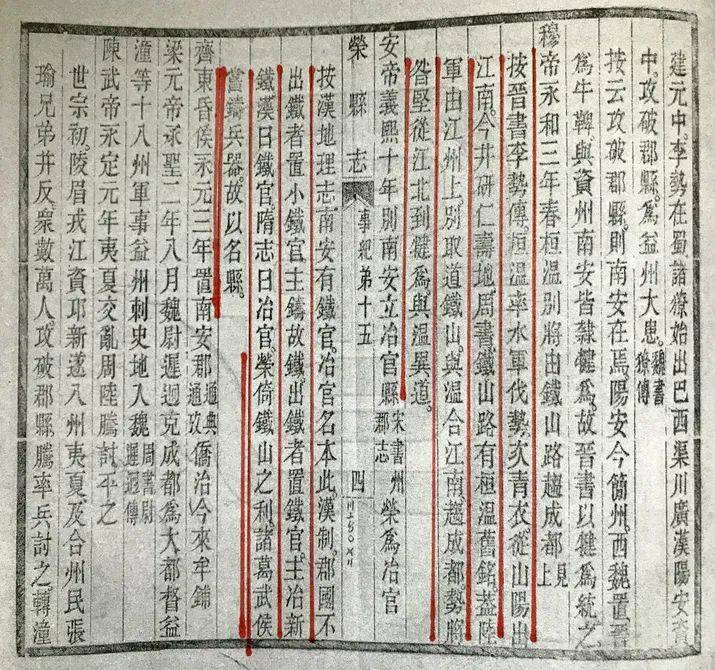 建元中。李勢在蜀諸獠始出巴西渠川廣漢陽安資
中。攻破郡縣。爲益州大患。魏書獠傳
按云攻破郡縣。則南安在焉。陽安今簡州。西魏置晉
爲牛鞞與資州南安皆隸犍爲。故晉書以犍爲統之
穆帝永和三年春桓温別將由鐵山路趨成都見上
按晉書李勢傳。桓温率水軍伐勢。次青衣從山陽出
江南。今井研仁壽地。周書鐵山路有桓温舊銘。蓋陸
軍由江州上。別取道鐵山。與温合江南。趨成都。勢將
昝堅從江北到犍爲。與温異道。
安帝義熙十年別南安立冶官縣宋書州郡志榮爲冶官
榮縣志 事紀第十五 四
按漢地理志南安有鐵官。冶官名本此。漢制。郡國不
出鐵者置小鐵官。主鑄故鐵。出鐵者置鐵官。主冶新
鐵。漢曰鐵官。隋志曰冶官。榮倚鐵山之利。諸葛武侯
嘗鑄兵器。故以名縣。
齊東昏侯永元三年置南安郡通典通攷僑治今來牟鋪
梁元帝承聖二年八月魏尉遲迥克成都爲大都督益
潼等十八州軍事益州刺史地入魏周書尉遲迥傳
陳武帝永定元年夷夏交亂周陸騰討平之
世宗初。陵眉戎江資邛新遂八州夷夏及合州民張
瑜兄弟并反。衆數萬人。攻破郡縣騰率兵討之。轉潼